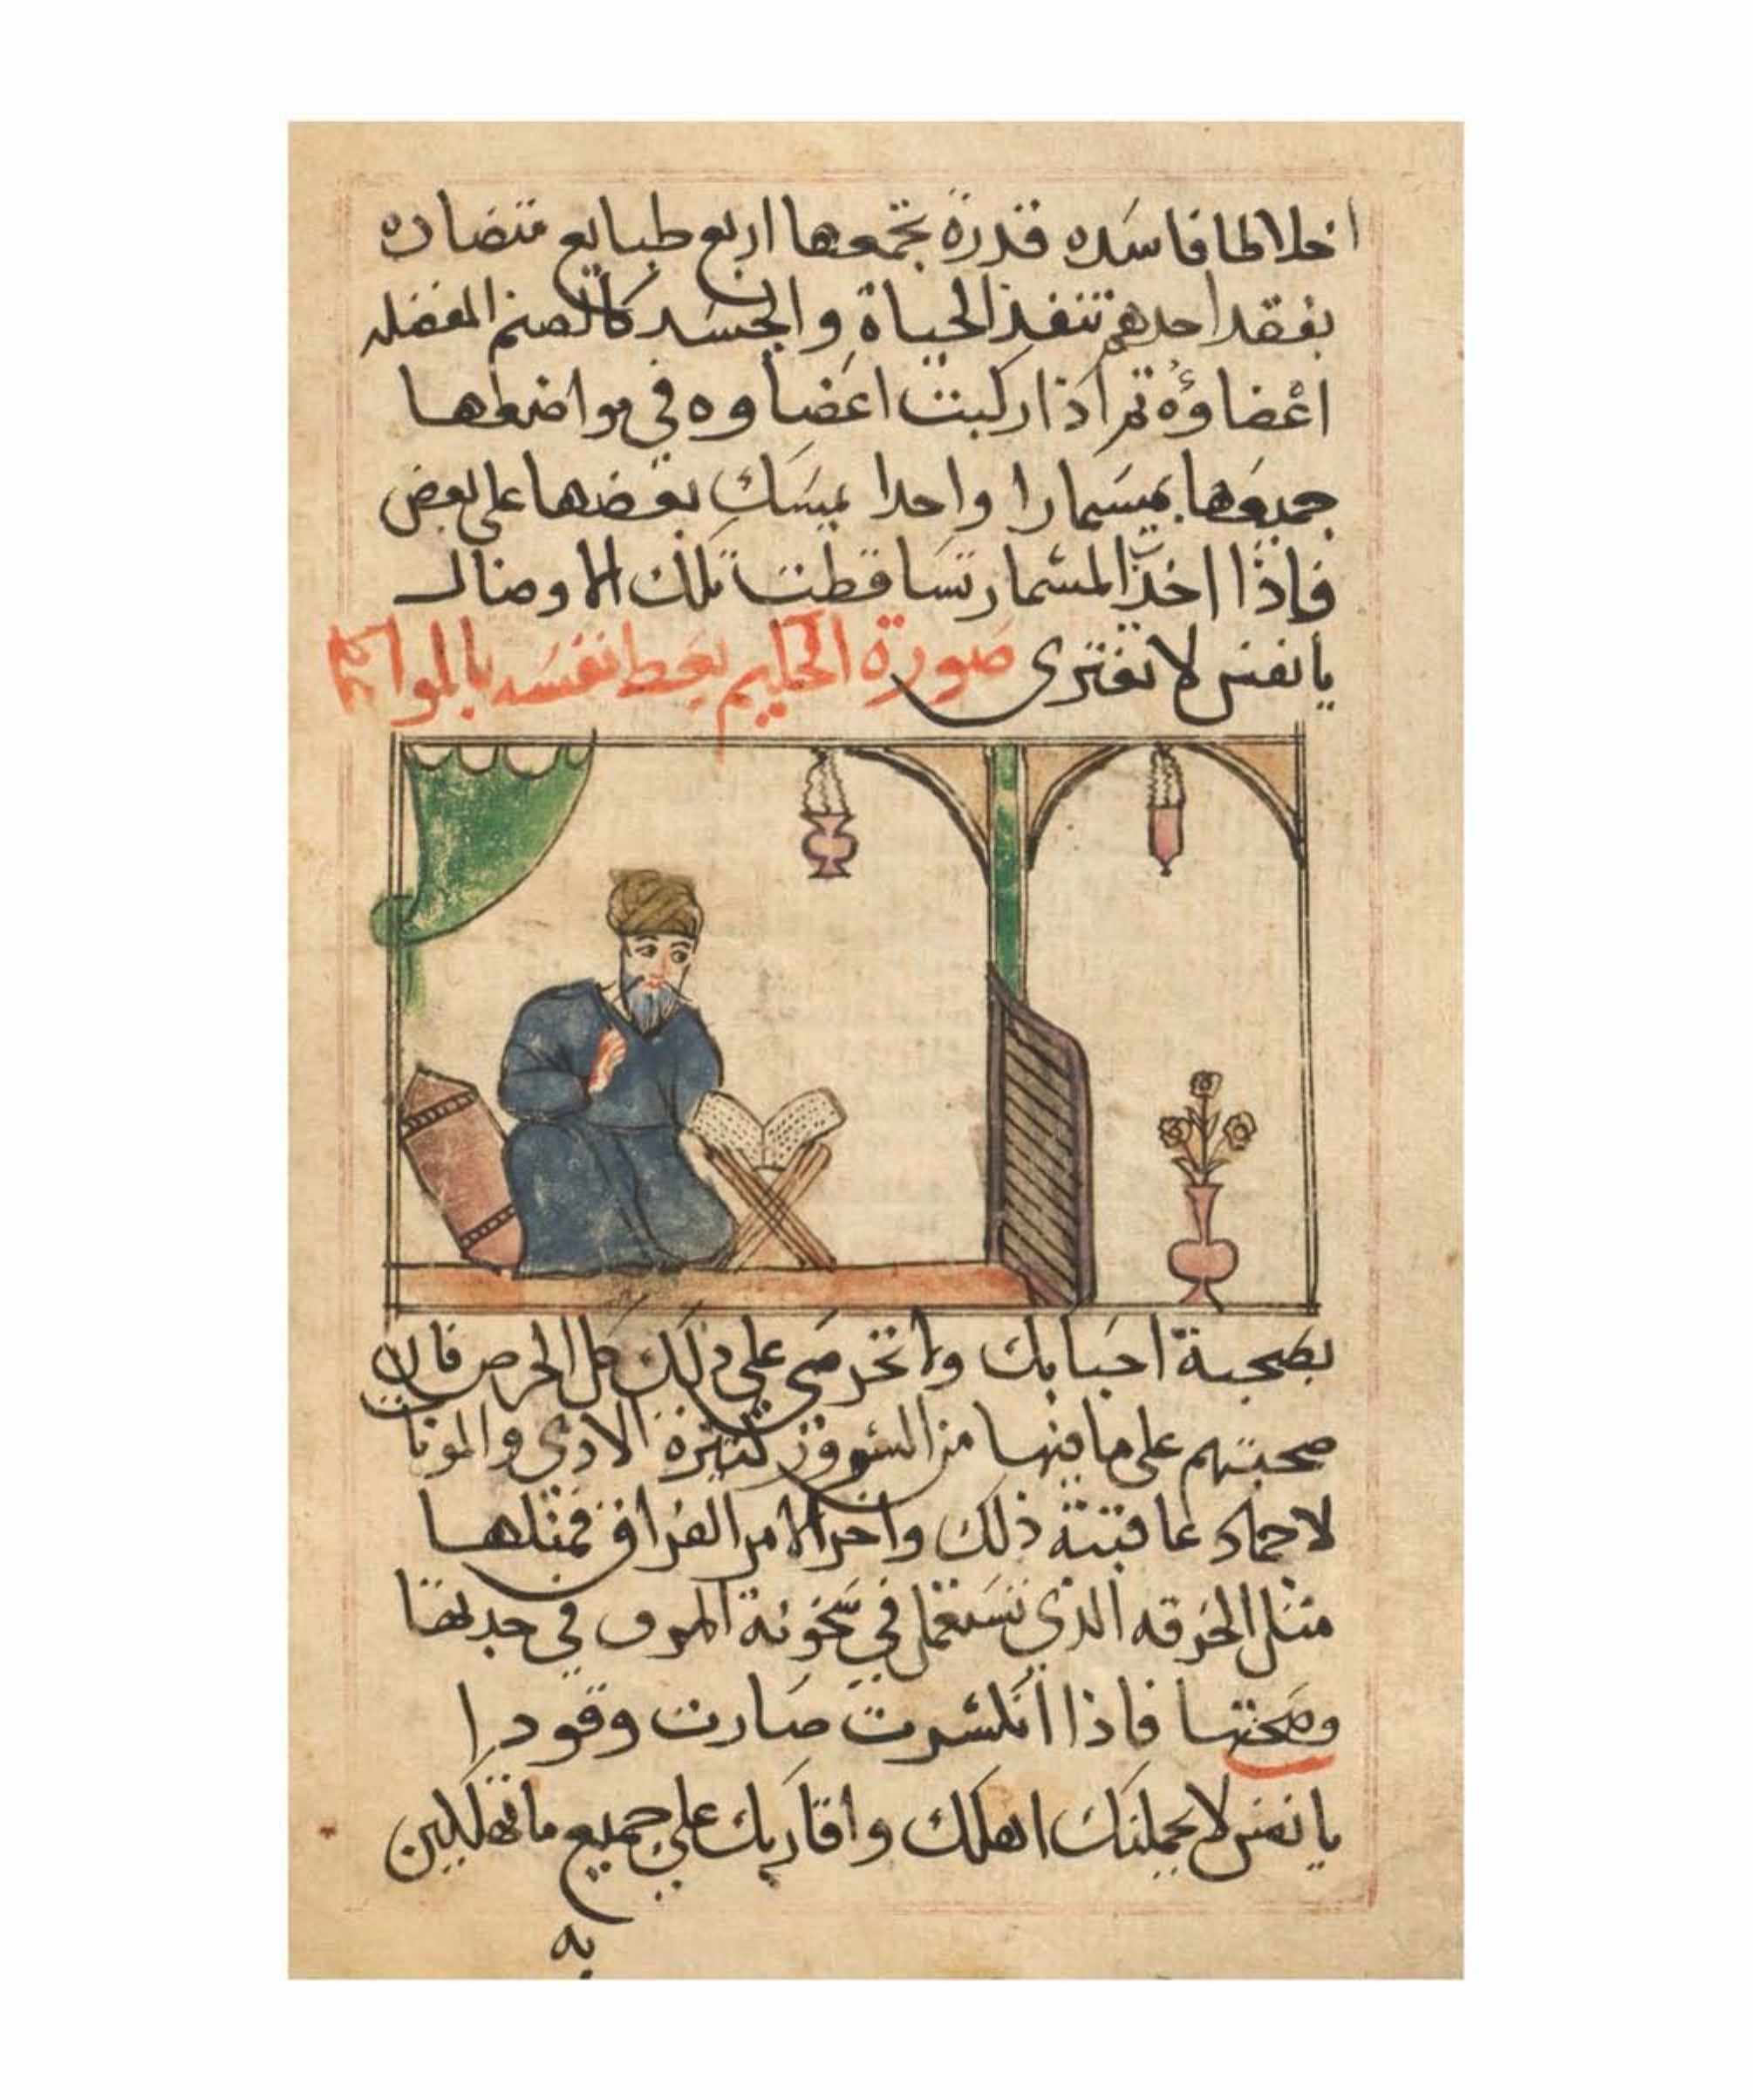 اخلاطا فاسده قذرة تجمعها اربع طبايع متضاده
بفقد احدهم تنفذ الحياة والجسد كالصنم المفصله
اعضاؤه ثم اذا ركبت اعضاوه في مواضعها
جميعها بميسمارا واحدا يميسك بعضها على بعض
فاذا اخذ المسمار تساقطت تلك الاوصال
يا نفس لا تغتري صورة الحكيم يعظ نفسه بالمواعظ
بصحبة احبابك ولا تحرصي علي ذلك كل الحرص فان
صحبتهم على ما فيها من السرور كثيرة الاذي والمونا
عاقبته ذلك واخر الامر الفراق فمثلها
مثل الخرقه الذي تستعمل في سخونة المرق في جدتها
وصحتها فاذا انكسرت صارت وقودا
يا نفس لا يحملنك اهلك واقاربك علي جميع ما تهلكين
به